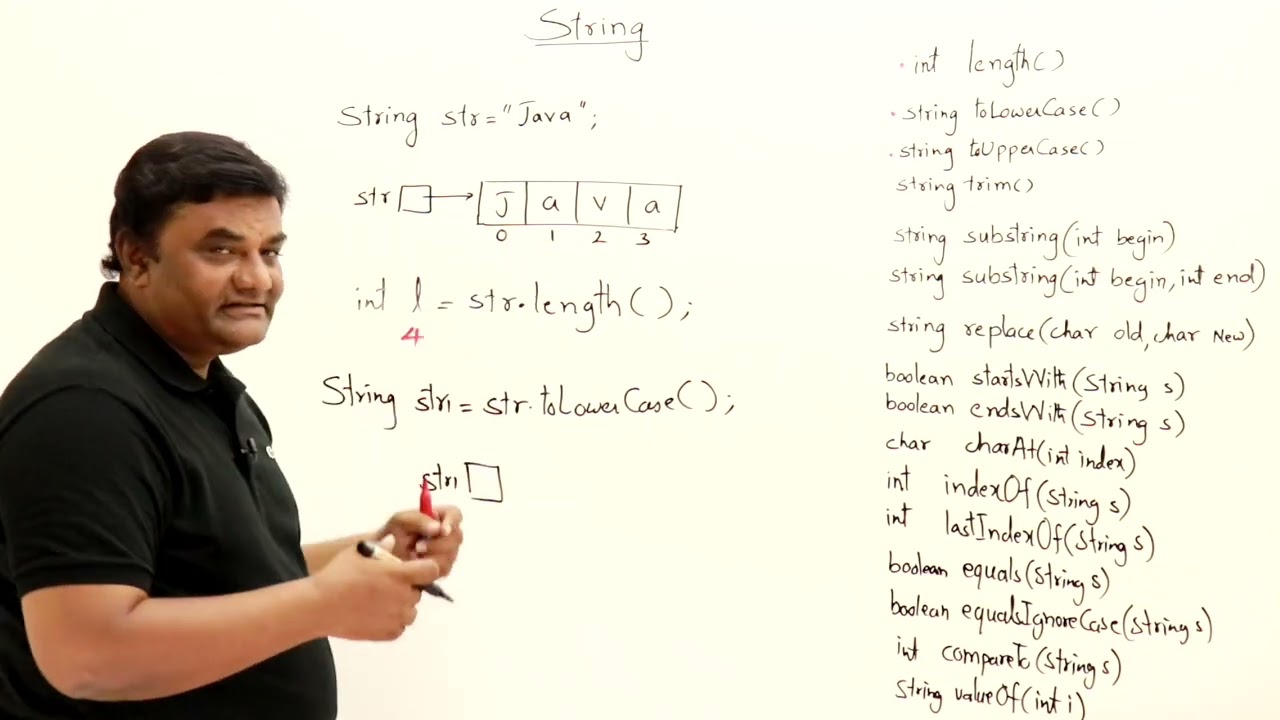 String
String str = "Java";
str
J a v a
0 1 2 3
int l = str.length();
4
String str1 = str.toLowerCase();
str1
int length()
string toLowerCase()
string toUpperCase()
string trim()
string substring(int begin)
string substring(int begin, int end)
string replace(char old, char New)
boolean startsWith(String s)
boolean endsWith(String s)
char charAt(int index)
int indexOf(String s)
int lastIndexOf(String s)
boolean equals(String s)
boolean equalsIgnoreCase(String s)
int compareTo(String s)
String valueOf(int i)